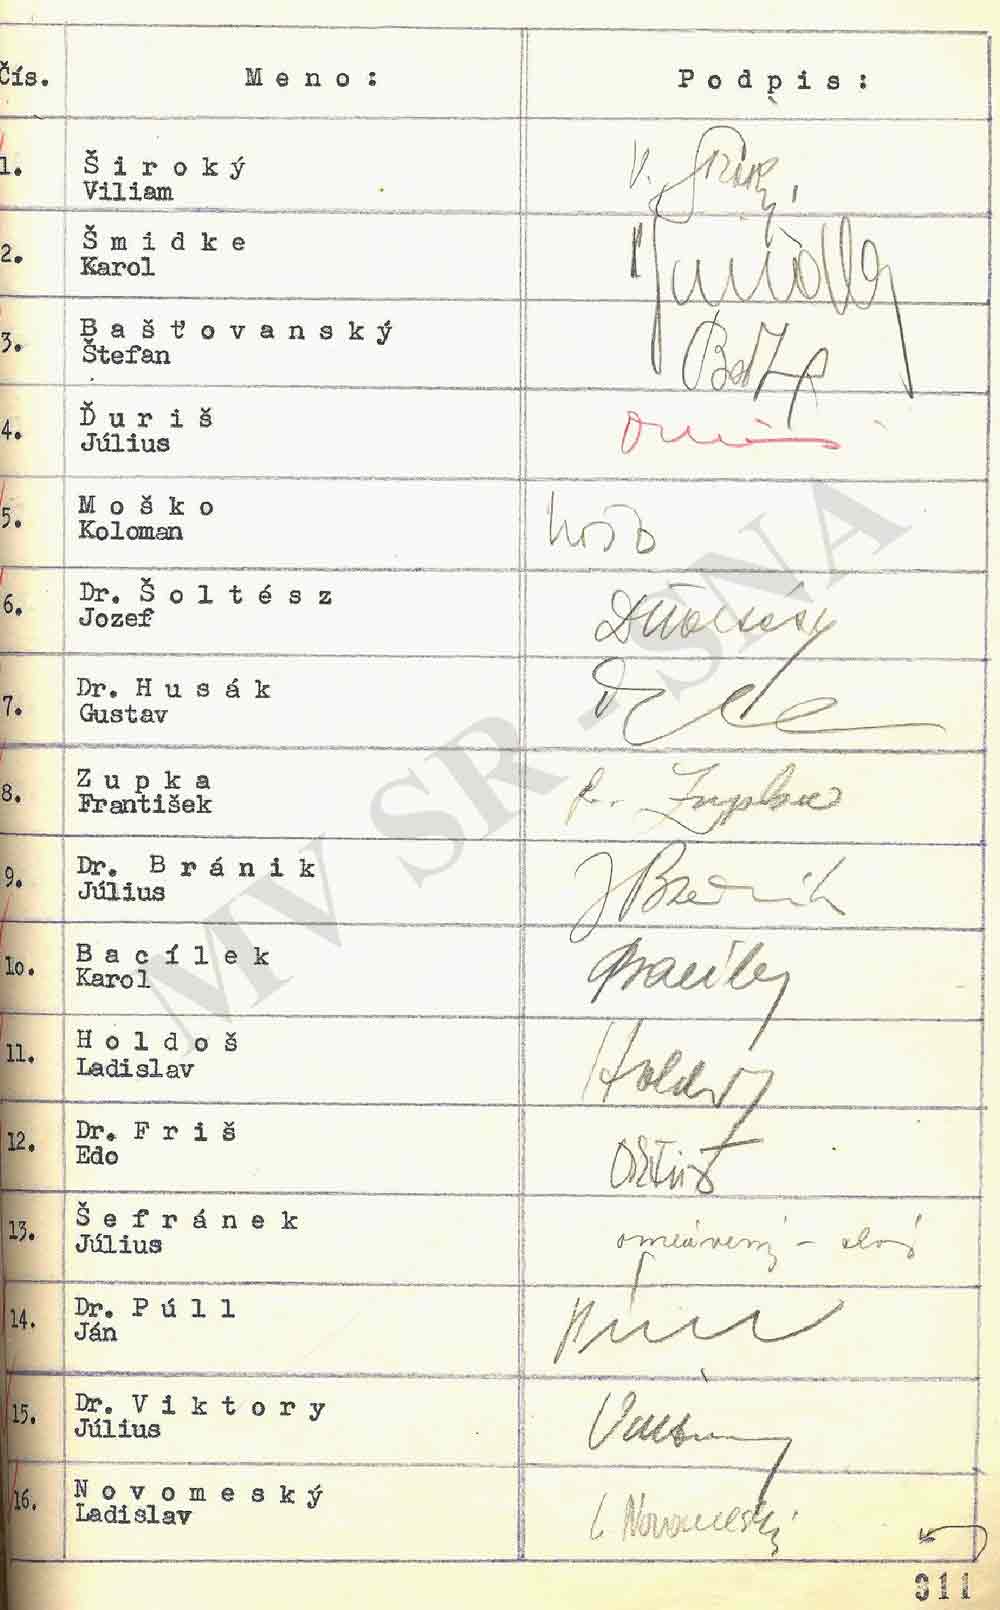 Čís. Meno: Podpis:
1. Široký
Viliam
V. Široký
2. Šmidke
Karol
Šmidke
3. Bašťovanský
Štefan
4. Ďuriš
Július
Ďuriš
5. Moško
Koloman
Moško
6. Dr. Šoltész
Jozef
Dr Šoltész
7. Dr. Husák
Gustav
8. Zupka
František
Fr. Zupka
9. Dr. Bránik
Július
J Bránik
10. Bacílek
Karol
Bacílek
11. Holdoš
Ladislav
Holdoš
12. Dr. Friš
Edo
Dr Friš
13. Šefránek
Július
14. Dr. Púll
Ján
Púll
15. Dr. Viktory
Július
Viktory
16. Novomeský
Ladislav
L Novomeský
MV SR - SNA
311